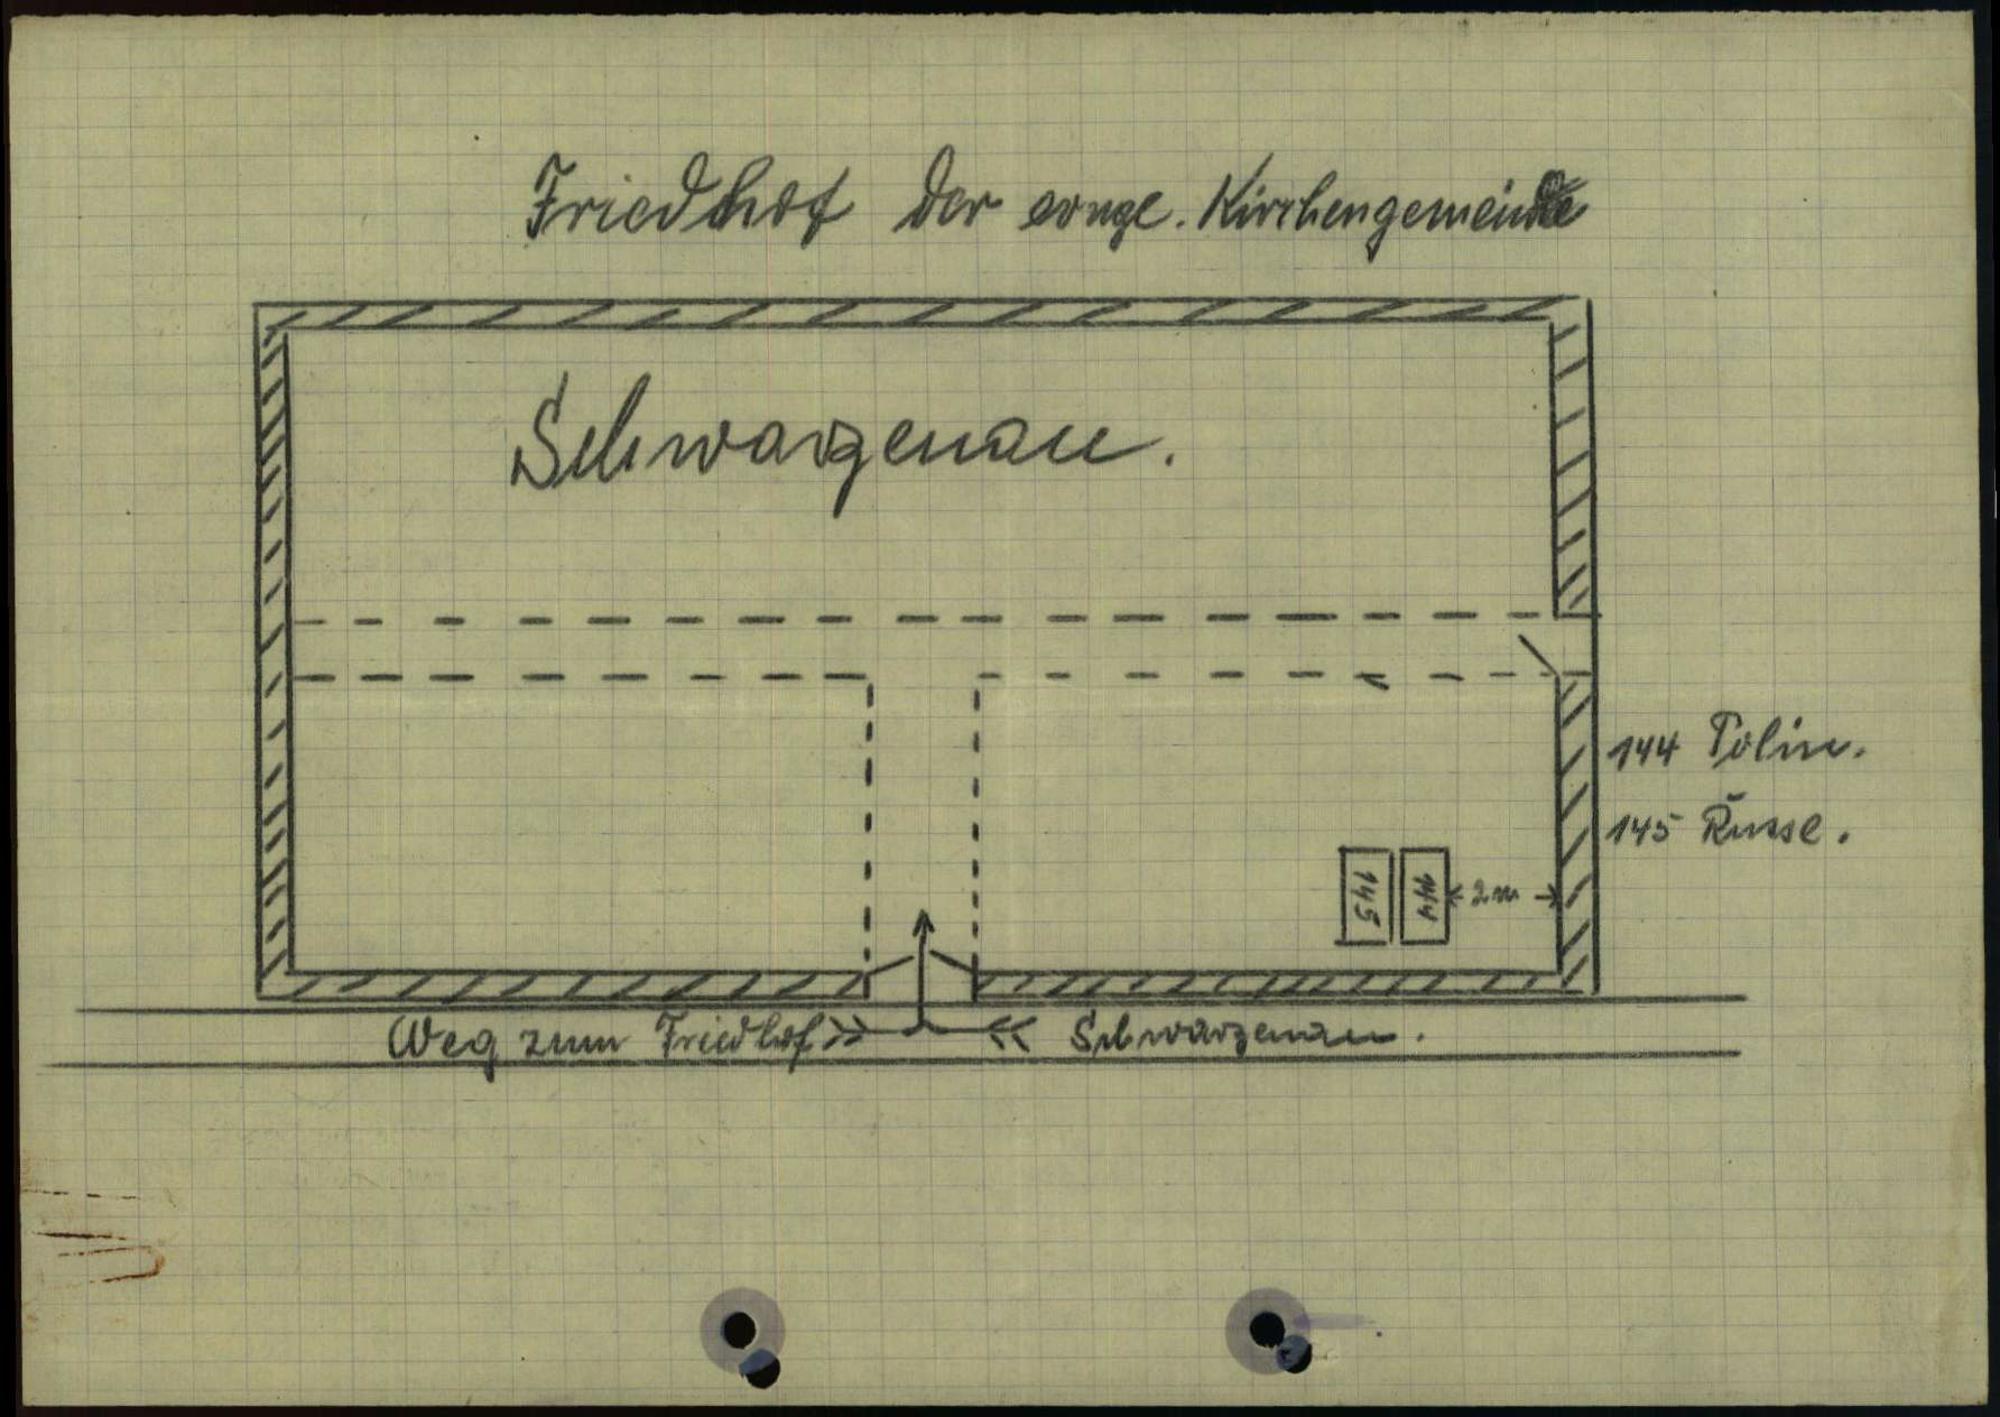 Friedhof der evngl. Kirchengemeinde
Schwarzenau.
144 Polin.
145 Russe.
145
144
2 m
Weg zum Friedhof
Schwarzenau.